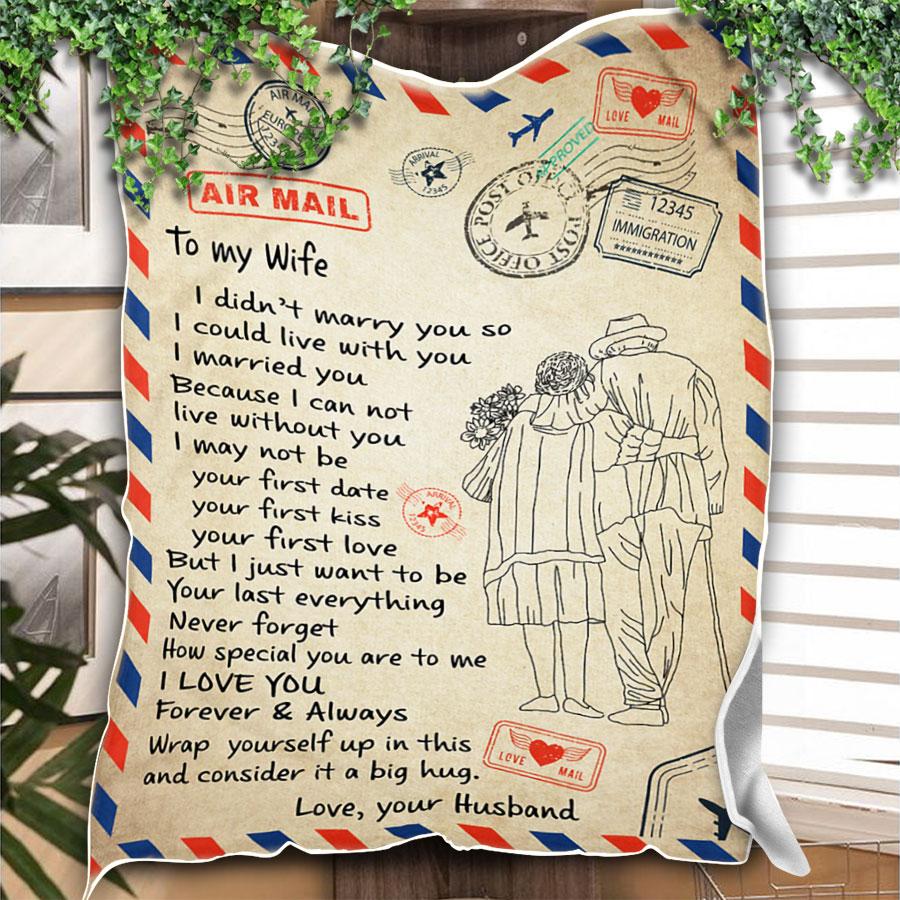 AIR MAIL
EUROPE
LOVE MAIL
APPROVED
ARRIVAL
12345
POST OFFICE POST OFFICE
12345
IMMIGRATION
AIR MAIL
To my Wife
I didn't marry you so
I could live with you
I married you
Because I can not
live without you
I may not be
your first date
your first kiss
your first love
But I just want to be
Your last everything
Never forget
How special you are to me
I LOVE YOU
Forever & Always
Wrap yourself up in this
and consider it a big hug.
Love, your Husband
ARRIVAL
12345
LOVE MAIL